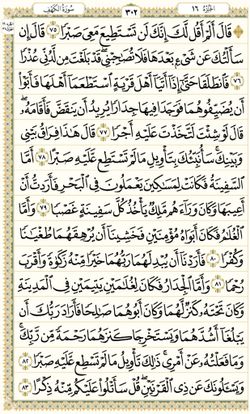 الجزء ١٦
٣٠٢
سورة الكهف
قَالَ أَلَمْ أَقُل لَّكَ إِنَّكَ لَن تَسْتَطِيعَ مَعِيَ صَبْرًا ٧٥ قَالَ إِن
سَأَلْتُكَ عَن شَيْءٍ بَعْدَهَا فَلَا تُصَاحِبْنِي قَدْ بَلَغْتَ مِن لَّدُنِّي عُذْرًا
٧٦ فَانطَلَقَا حَتَّى إِذَا أَتَيَا أَهْلَ قَرْيَةٍ اسْتَطْعَمَا أَهْلَهَا فَأَبَوْا
أَن يُضَيِّفُوهُمَا فَوَجَدَا فِيهَا جِدَارًا يُرِيدُ أَن يَنقَضَّ فَأَقَامَهُ
قَالَ لَوْ شِئْتَ لَتَّخَذْتَ عَلَيْهِ أَجْرًا ٧٧ قَالَ هَذَا فِرَاقُ بَيْنِي
وَبَيْنِكَ سَأُنَبِّئُكَ بِتَأْوِيلِ مَا لَمْ تَسْتَطِع عَّلَيْهِ صَبْرًا ٧٨ أَمَّا
السَّفِينَةُ فَكَانَتْ لِمَسَاكِينَ يَعْمَلُونَ فِي الْبَحْرِ فَأَرَدتُّ أَنْ
أَعِيبَهَا وَكَانَ وَرَاءَهُم مَّلِكٌ يَأْخُذُ كُلَّ سَفِينَةٍ غَصْبًا ٧٩ وَأَمَّا
الْغُلَامُ فَكَانَ أَبَوَاهُ مُؤْمِنَيْنِ فَخَشِينَا أَن يُرْهِقَهُمَا طُغْيَانًا
وَكُفْرًا ٨٠ فَأَرَدْنَا أَن يُبْدِلَهُمَا رَبُّهُمَا خَيْرًا مِّنْهُ زَكَاةً وَأَقْرَبَ
رُحْمًا ٨١ وَأَمَّا الْجِدَارُ فَكَانَ لِغُلَامَيْنِ يَتِيمَيْنِ فِي الْمَدِينَةِ
وَكَانَ تَحْتَهُ كَنزٌ لَّهُمَا وَكَانَ أَبُوهُمَا صَالِحًا فَأَرَادَ رَبُّكَ أَن
يَبْلُغَا أَشُدَّهُمَا وَيَسْتَخْرِجَا كَنزَهُمَا رَحْمَةً مِّن رَّبِّكَ
وَمَا فَعَلْتُهُ عَنْ أَمْرِي ذَلِكَ تَأْوِيلُ مَا لَمْ تَسْطِع عَّلَيْهِ صَبْرًا ٨٢
وَيَسْأَلُونَكَ عَن ذِي الْقَرْنَيْنِ قُلْ سَأَتْلُو عَلَيْكُم مِّنْهُ ذِكْرًا ٨٣